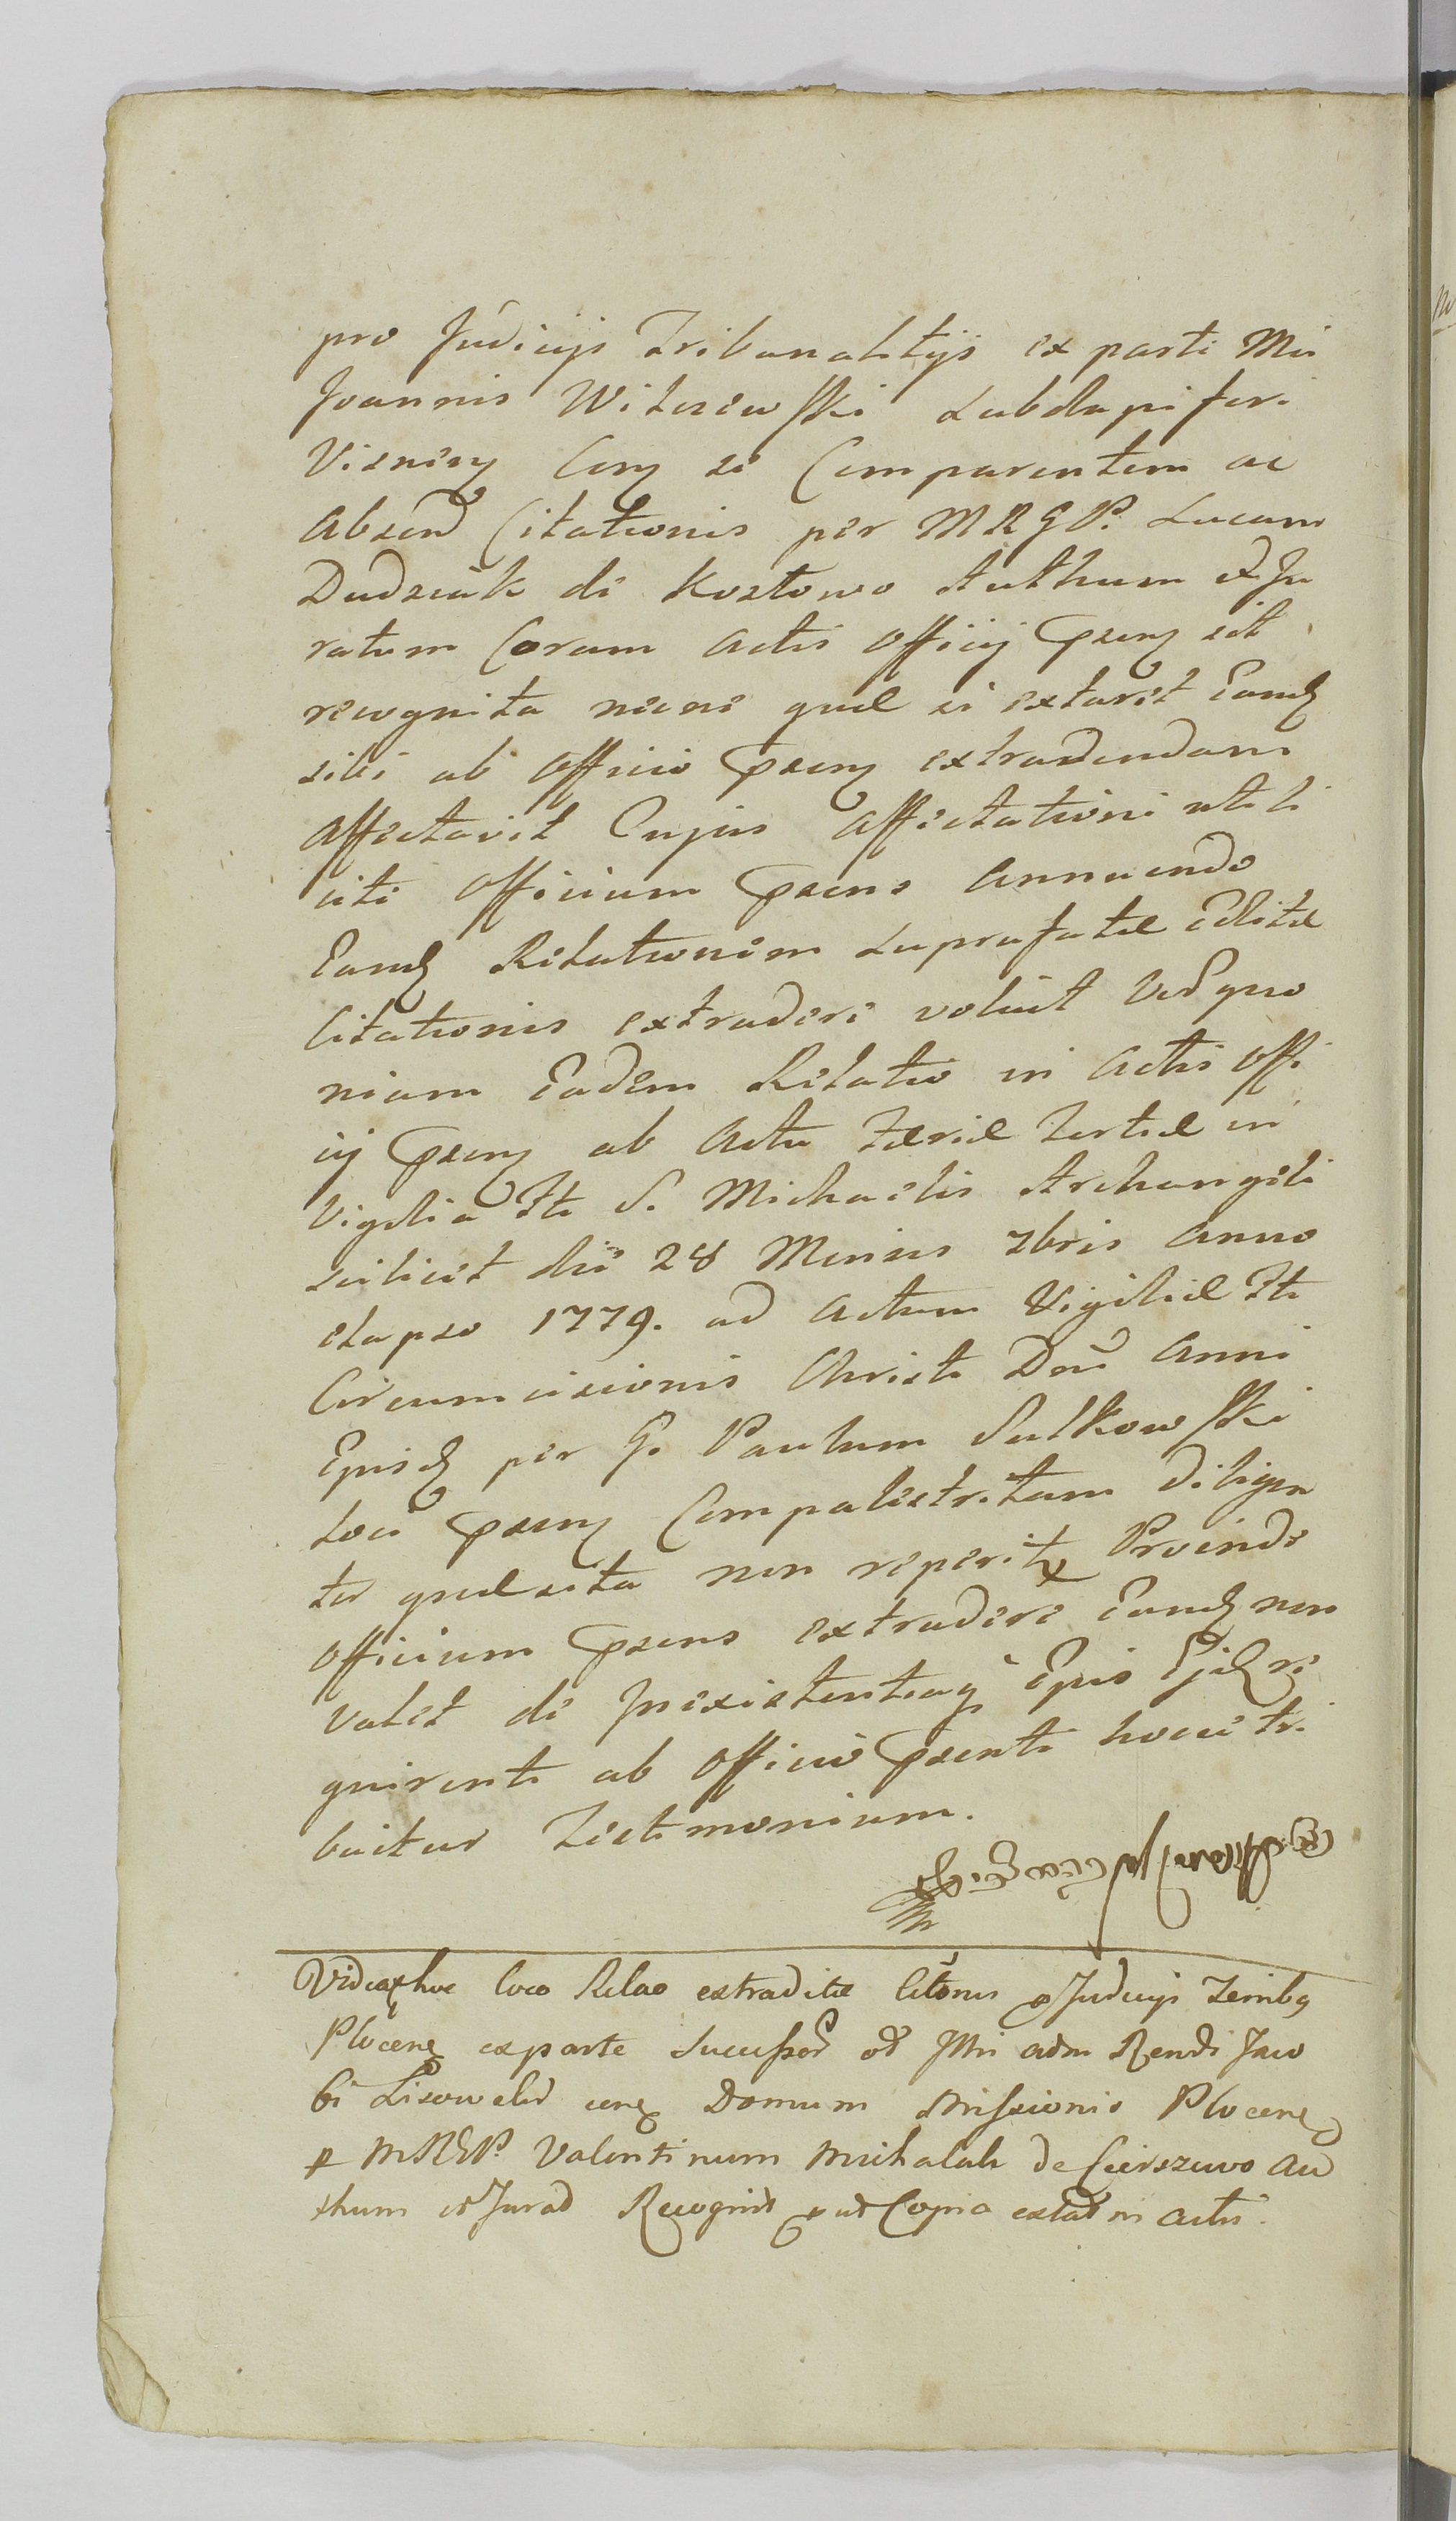 pro Judicijs Tribunalitijs ex parte Mci
Joannis Witerewski Subdapiferi
Visnen Con se Comparentem ac
Absend Citationis per MRGP. Lucam
Dudziak de Kostowo Authum et Ju
ratum Coram Actis Officij Psen sit
recognita nec ne quæ si extaret Eand
sibi ab Officio Psen extradendam
Affectavit Cujus Affectationi uti li
citæ Officium Psens Annuendo
Eand Relationem Suprafatæ Editæ
Citationis extradere voluit Ved quo
niam Eadem Relatio in Actis Offi
cij Psen ab Actu Feriæ Tertiæ in
Vigilia Fti S. Michaelis Archangeli
scilicet die 28 Mensis 7bris Anno
elapso 1779. ad Actum Vigiliæ Fti
Circumcisionis Christi Dni Anni
Ejusd per G. Paulum Sulkowski
Loci Psen Compalestritam diligen
ter quæsita non reperitr Proinde
Officium Psens extradere Eand non
valet de Inexistentiaq Ejus Ejid re
quirenti ab Officio Psenti hocce tri
buitur Testimonium.
Videat hoc loco Relao extraditæ Citonis Judicijs Zemb
Plocen ex parte Successor et Mri adm Rendi Jaco
bi Lisowski con Domum Missionis Plocen
p MRGP. Valentinum Michalak de Cierszewo Au
thum et Jurad Recognit ut Copia extat in Actis.